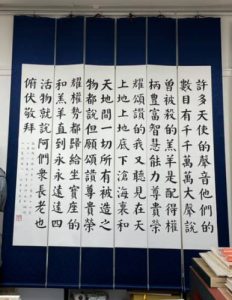 許多天使的聲音他們的
數目有千千萬萬大聲說
曾被殺的羔羊是配得權
柄豐富智慧能力尊貴榮
耀頌讚的我又聽見在天
上地上地底下滄海裏和
天地間一切所有被造之
物都說但願頌讚尊貴榮
耀權勢都歸給坐寶座的
和羔羊直到永永遠遠四
活物就說阿們眾長老也
俯伏敬拜